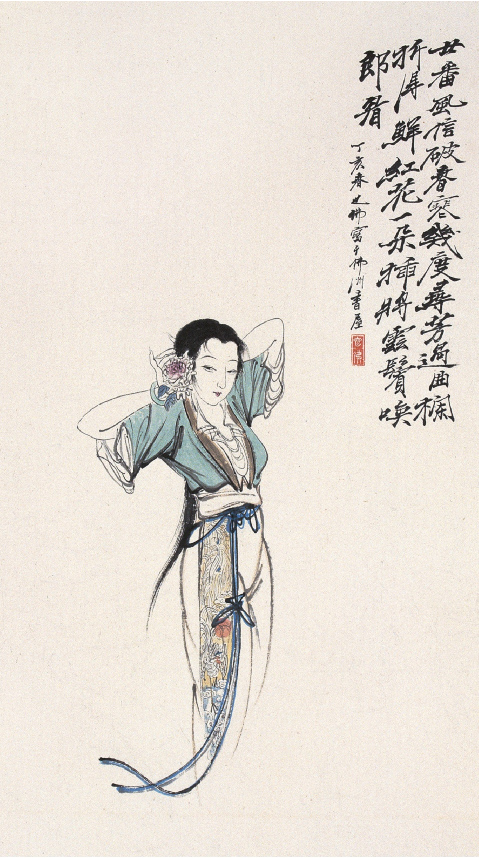 廿番風信破春寒幾度尋芳過曲欄
折得鮮紅花一朵插將雲鬢喚
郎看
丁亥春佛寫于佛洲書屋